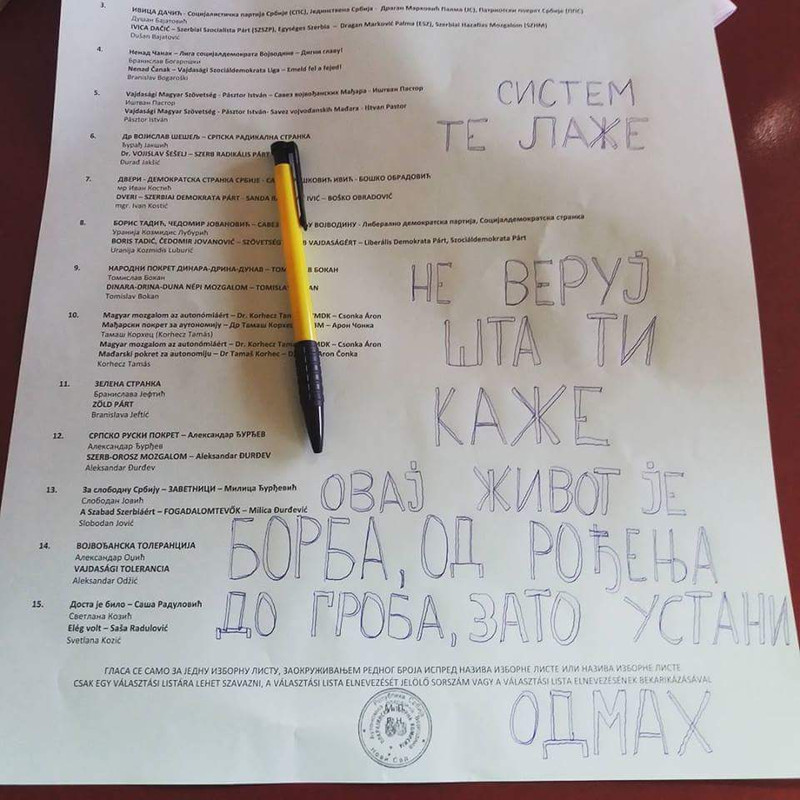 3. ИВИЦА ДАЧИЋ - Социјалистичка партија Србије (СПС), Јединствена Србија - Драган Марковић Палма (ЈС), Патриотски покрет Србије (ППС)
Душан Бајатовић
IVICA DAČIĆ – Szerbiai Szocialista Párt (SZSZP), Egységes Szerbia – Dragan Marković Palma (ESZ), Szerbiai Hazafias Mozgalom (SZHM)
Dušan Bajatović
4. Ненад Чанак – Лига социјалдемократа Војводине – Дигни главу!
Бранислав Богарошки
Nenad Čanak – Vajdasági Szociáldemokrata Liga – Emeld fel a fejed!
Branislav Bogaroški
СИСТЕМ
5. Vajdasági Magyar Szövetség - Pásztor István – Савез војвођанских Мађара - Иштван Пастор
Иштван Пастор
Vajdasági Magyar Szövetség - Pásztor István- Savez vojvođanskih Mađara - Ištvan Pastor
Pásztor István
ТЕ ЛАЖЕ
6. Др ВОЈИСЛАВ ШЕШЕЉ – СРПСКА РАДИКАЛНА СТРАНКА
Ђурађ Јакшић
Dr. VOJISLAV ŠEŠELJ – SZERB RADIKÁLIS PÁRT
Đurađ Jakšić
7. ДВЕРИ - ДЕМОКРАТСКА СТРАНКА СРБИЈЕ - ИВИЋ - БОШКО ОБРАДОВИЋ
мр Иван Костић
DVERI – SZERBIAI DEMOKRATA PÁRT - SANDA IVIĆ – BOŠKO OBRADOVIĆ
mgr. Ivan Kostić
8. БОРИС ТАДИЋ, ЧЕДОМИР ЈОВАНОВИЋ – САВЕЗ ВОЈВОДИНУ - Либерално демократска партија, Социјалдемократска странка
Уранија Козмидис Лубурић
BORIS TADIĆ, ČEDOMIR JOVANOVIĆ – SZÖVETSÉG VAJDASÁGÉRT – Liberális Demokrata Párt, Szociáldemokrata Párt
Uranija Kozmidis Luburić
9. НАРОДНИ ПОКРЕТ ДИНАРА-ДРИНА-ДУНАВ – БОКАН
Томислав Бокан
DINARA-DRINA-DUNA NÉPI MOZGALOM – TOMISLAV
Tomislav Bokan
НЕ ВЕРУЈ
10. Magyar mozgalom az autonómiáért – Dr. Korhecz – Csonka Áron
Мађарски покрет за аутономију – Др Тамаш Корхец – Арон Чонка
Тамаш Корхец (Korhecz Tamás)
Magyar mozgalom az autonómiáért – Dr. Korhecz – Csonka Áron
Mađarski pokret za autonomiju – Dr Tamaš Korhec – Aron Čonka
Korhecz Tamás
ШТА ТИ
11. ЗЕЛЕНА СТРАНКА
Бранислава Јефтић
ZÖLD PÁRT
Branislava Jeftić
КАЖЕ
12. СРПСКО РУСКИ ПОКРЕТ – Александар ЂУРЂЕВ
Александар Ђурђев
SZERB-OROSZ MOZGALOM – Aleksandar ĐURĐEV
Aleksandar Đurđev
13. За слободну Србију – ЗАВЕТНИЦИ – Милица Ђурђевић
Слободан Јовић
A Szabad Szerbiáért – FOGADALOMTEVŐK – Milica Đurđević
Slobodan Jović
ОВАЈ ЖИВОТ ЈЕ
14. ВОЈВОЂАНСКА ТОЛЕРАНЦИЈА
Александар Оџић
VAJDASÁGI TOLERANCIA
Aleksandar Odžić
БОРБА, ОД РОЂЕЊА
15. Доста је било – Саша Радуловић
Светлана Козић
Elég volt – Saša Radulović
Svetlana Kozić
ДО ГРОБА, ЗАТО УСТАНИ
ГЛАСА СЕ САМО ЗА ЈЕДНУ ИЗБОРНУ ЛИСТУ, ЗАОКРУЖИВАЊЕМ РЕДНОГ БРОЈА ИСПРЕД НАЗИВА ИЗБОРНЕ ЛИСТЕ ИЛИ НАЗИВА ИЗБОРНЕ ЛИСТЕ
CSAK EGY VÁLASZTÁSI LISTÁRA LEHET SZAVAZNI, A VÁLASZTÁSI LISTA ELNEVEZÉSÉT JELÖLŐ SORSZÁM VAGY A VÁLASZTÁSI LISTA ELNEVEZÉSÉNEK BEKARIKÁZÁSÁVAL
ОДМАХ
Република Србија
Нови Сад